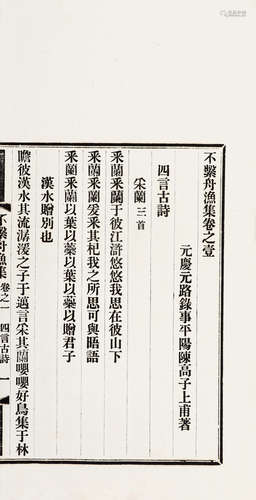 不繫舟漁集卷之壹
元慶元路錄事平陽陳高子上甫著
四言古詩
采蘭三首
采蘭采蘭于彼江滸悠悠我思在彼山下
采蘭采蘭爰采其杞我之所思可與晤語
采蘭采蘭以葉以藥以贈君子
漢水贈別也
瞻彼漢水其流潺湲之子于邁言采其蘭嚶嚶好鳥集于林
不繫舟漁集 卷之一 四言古詩 一